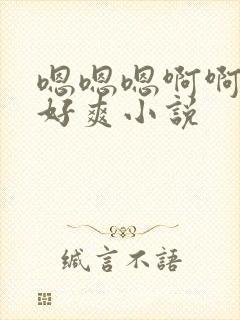 嗯嗯嗯啊啊
好爽小説
缄言不語